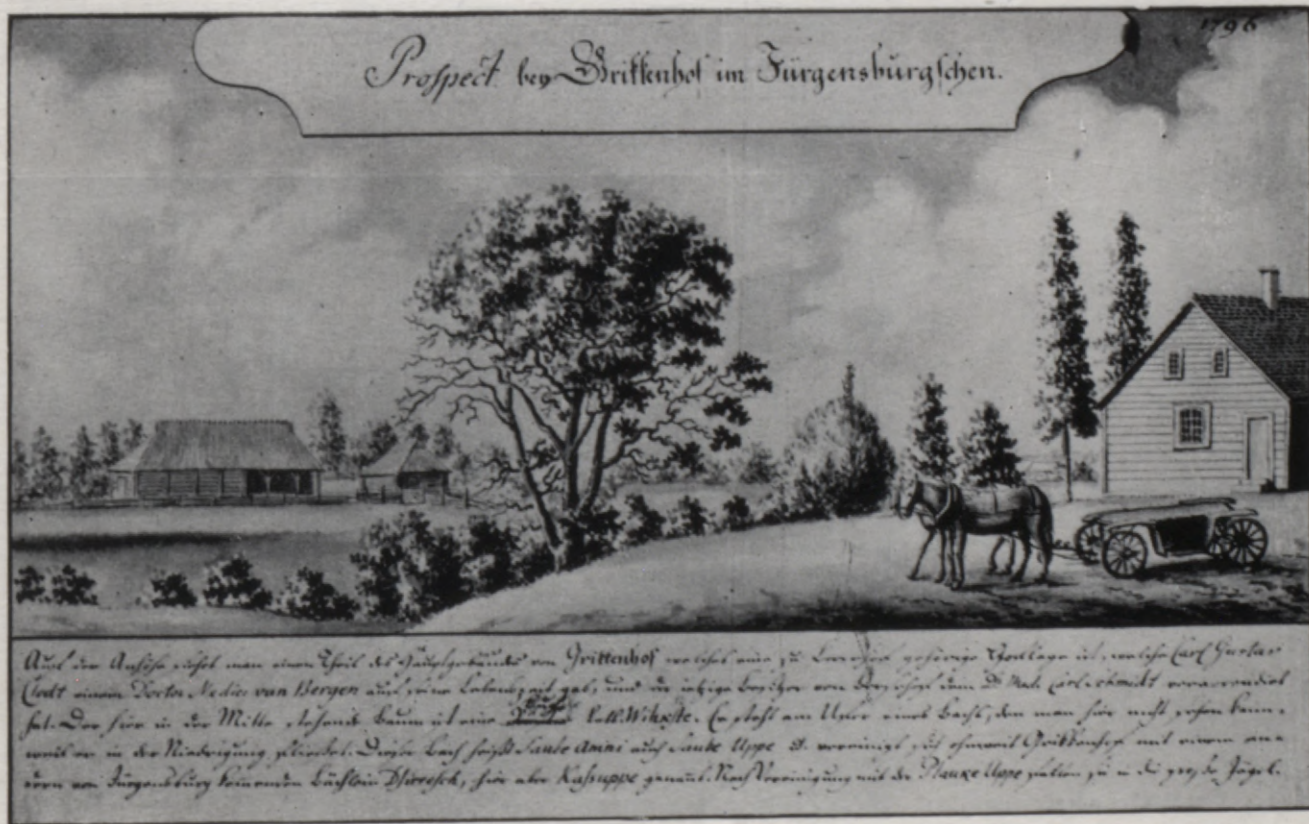 1796
Prospect bey Grittenhof im Jürgensburgschen.
Auf der Anhöhe siehet man einen Theil des Hauptgebäudes von Grittenhof welches eine zu gehörige Hoflage ist, welche Carl Gustav
Clodt einem Doctor Medic: van Bergen auf seine Lebenszeit gab, und der jetzige Besitzer von dem Carl Schmidt verarrendirt
hat. Der hier in der Mitte stehende Baum ist eine lett. Wihxste. Er steht am Ufer eines Bachs, den man hier nicht sehen kann,
weil er in der Niedrigung fliesset. Dieser Bach heißt Sauke Amni auch Sauke Uppe u. vereinigt sich ohnweit Grittenhof mit einem an=
dern von Jürgensburg kommenden Bächlein hier aber Kasuppe genannt. Nach Vereinigung mit der Uppe fallen sie in die große Jägel.